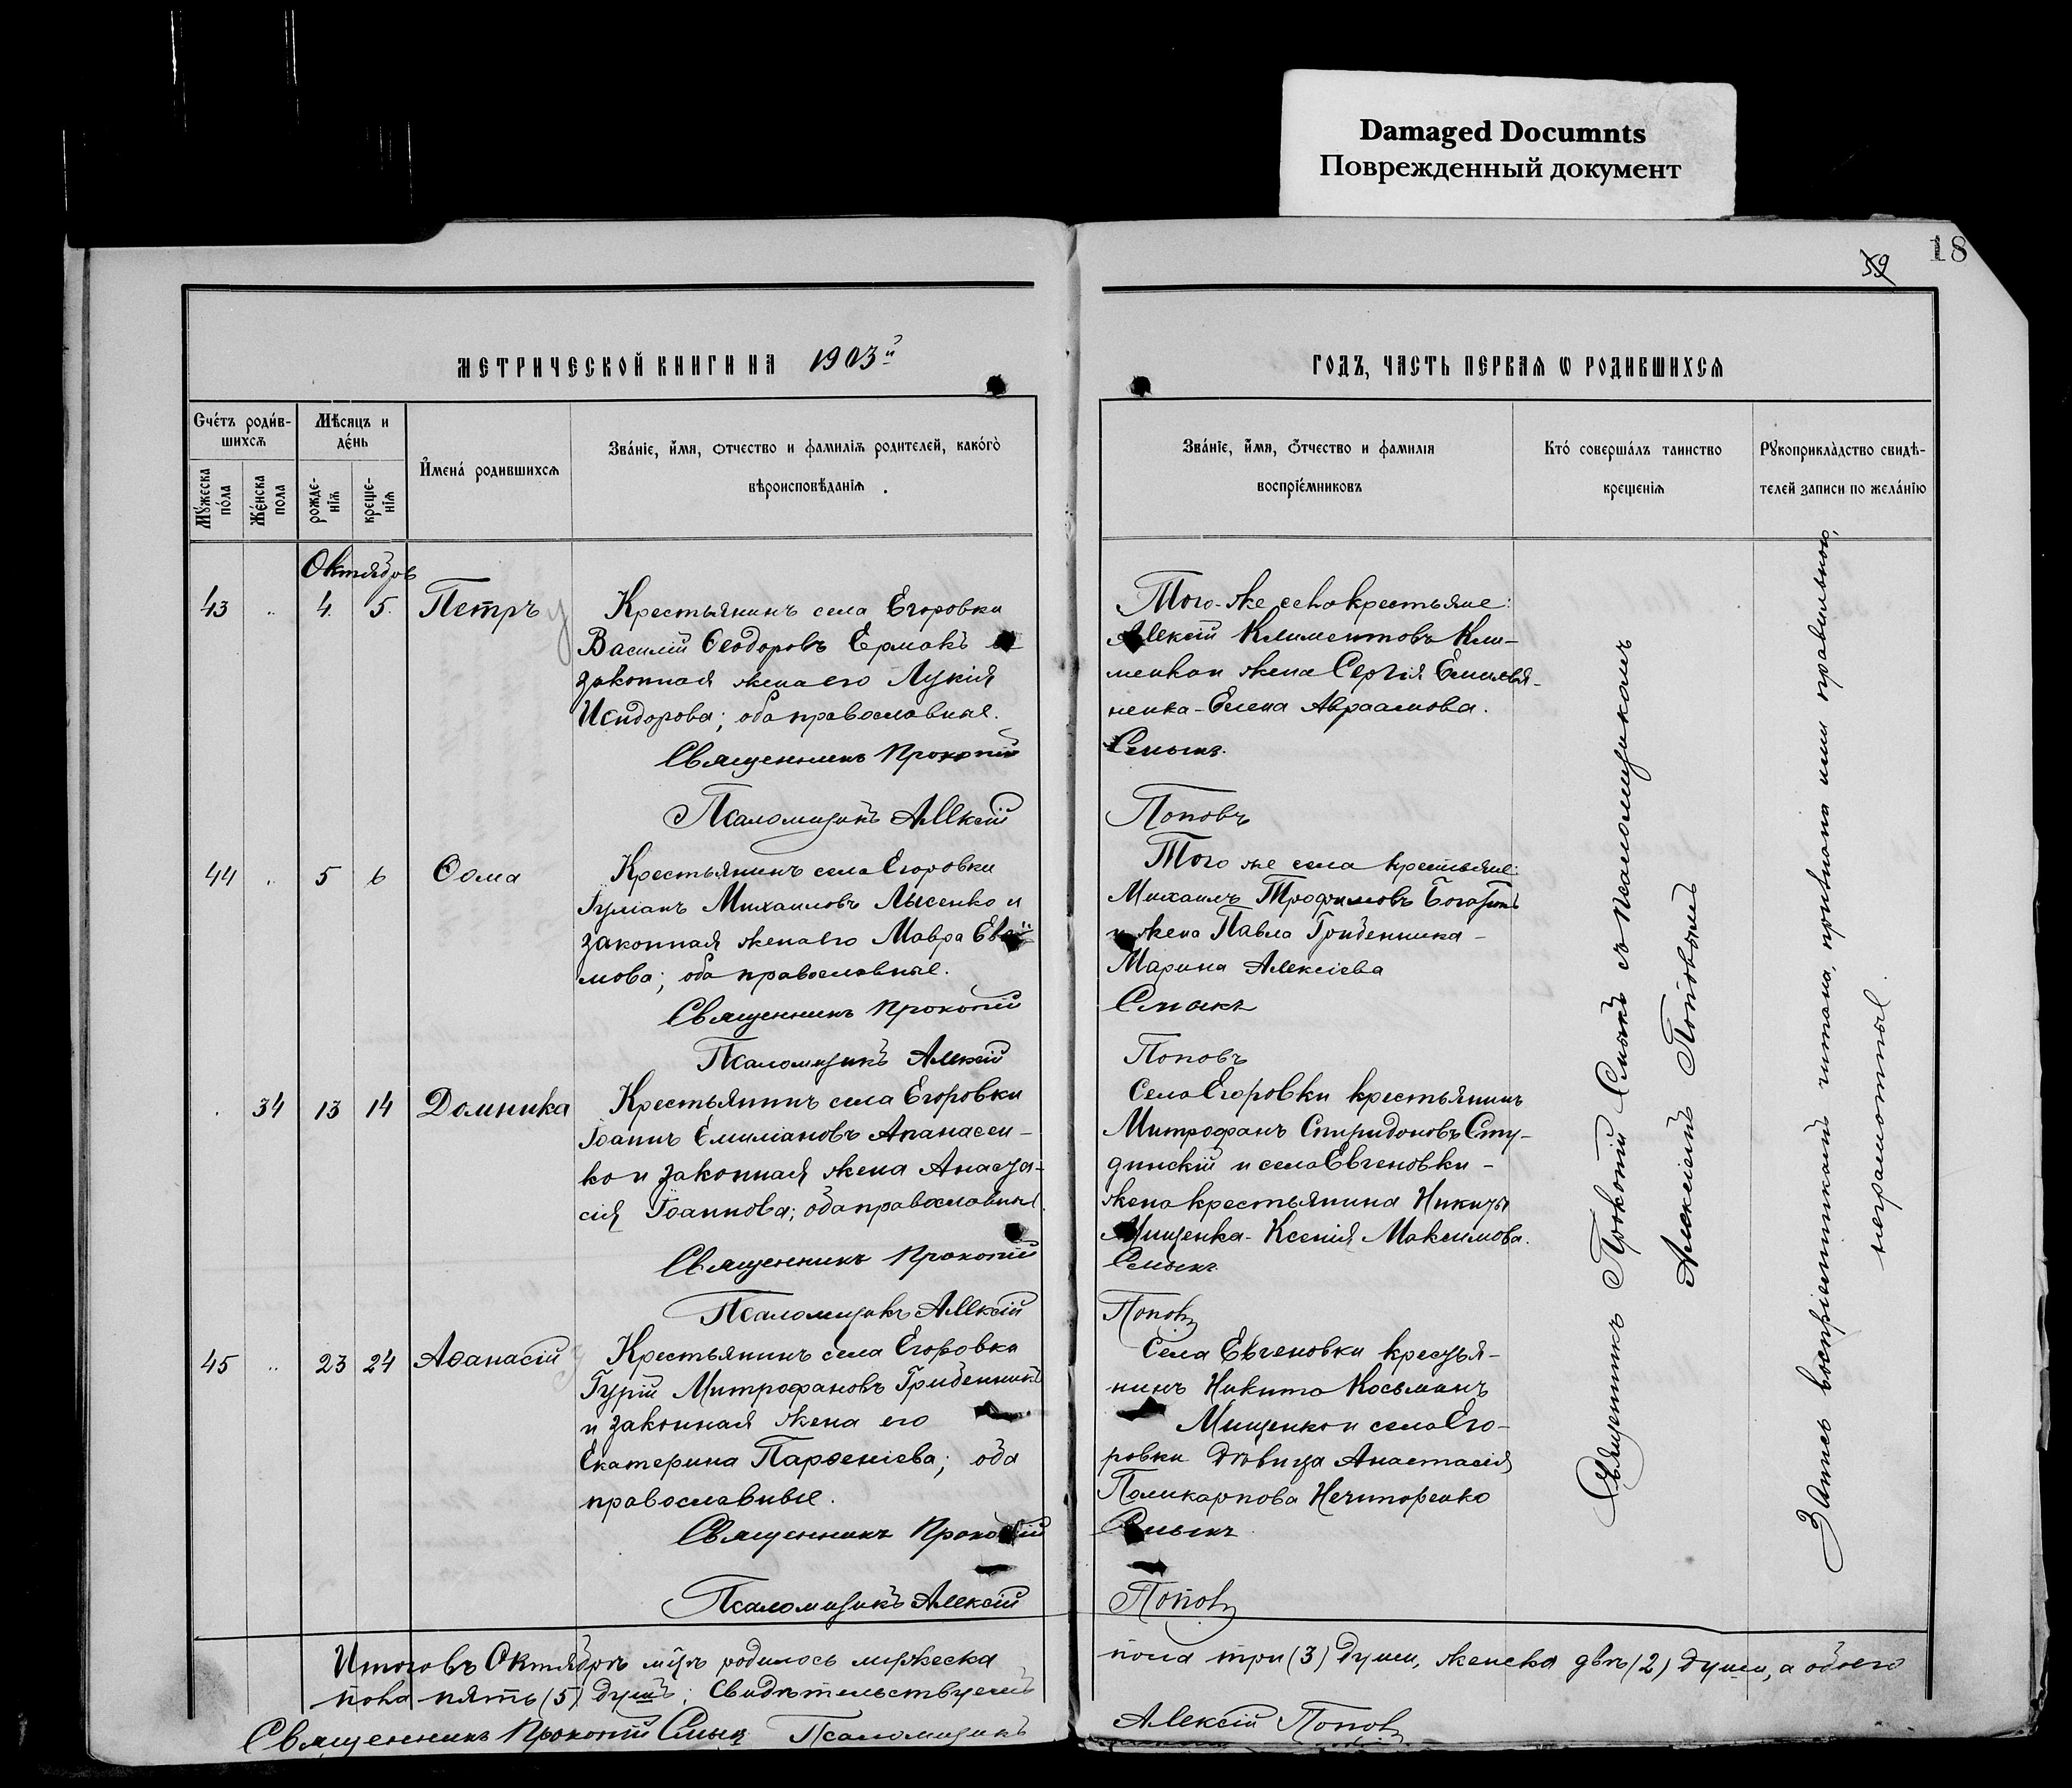 Damaged Documnts
Поврежденный документ
18
59
МЕТРИЧЕСКОЙ КНИГИ НА 1903й
ГОДЪ, ЧАСТЬ ПЕРВАЯ Ѡ РОДИВШИХСЯ
Счетъ родившихся
Мѣсяцъ и день
Имена родившихся
Званіе, имя, отчество и фамилія родителей, какого
вѣроисповѣданія
Мужеска пола
Женска пола
рожденія
крещенія
Званіе, имя, отчество и фамилія
воспріемниковъ
Кто совершалъ таинство
крещенія
Рукоприкладство свидѣ-
телей записи по желанію
Октябрь
43 " 4. 5. Петръ
Крестьянинъ села Егоровки
Василій Ѳеодоровъ Ермакъ и
законная жена его Лукія
Исидорова; оба православные.
Священникъ Прокопій
Псаломщикъ Алексій
Того-же села крестьяне:
Алексій Климентовъ Кли-
менко и жена Сергія Емилья-
ненка - Елена Авраамова.
Смыкъ.
Поповъ
44 " 5 6 Ѳома
Крестьянинъ села Егоровки
Іуліанъ Михаиловъ Лысенко и
законная жена его Мавра
мова; оба православные.
Священникъ Прокопій
Псаломщикъ Алексій
Того же села крестьяне:
Михаилъ Трофимовъ
и жена Павла Гриденника -
Марина Алексіева
Смыкъ
Поповъ
" 34 13 14 Домника
Крестьянинъ села Егоровки
Іоаннъ Емиліановъ Апанасен-
ко и законная жена Анаста-
сія Іоаннова; оба православные.
Священникъ Прокопій
Псаломщикъ Алексій
Села Егоровки крестьянинъ
Митрофанъ Спиридоновъ Сту-
динскій и села Евгеновки -
жена крестьянина Никиты
Мищенка - Ксенія Максимова.
Смыкъ
Поповъ
45 " 23 24 Аѳанасій
Крестьянинъ села Егоровки
Гурій Митрофановъ Гриденникъ
и законная жена его
Екатерина Парѳеніева; оба
православные.
Священникъ Прокопій
Псаломщикъ Алексій
Села Евгеновки крестья-
нинъ Никита Косьминъ
Мищенко и села Его-
ровки дѣвица Анастасія
Поликарпова Нечипоренко
Смыкъ
Поповъ
Священникъ Прокопій Смыкъ съ псаломщикомъ
Алексіемъ Поповымъ
Запись воспріемниками читана, признана ими правильною,
неграмотные.
Итого въ Октябрѣ мцѣ родилось мужеска
пола три (3) души, женска двѣ (2) души, а обоего
пола пять (5) душъ; свидѣтельствуемъ
Священникъ Прокопій Смыкъ Псаломщикъ
Алексій Поповъ